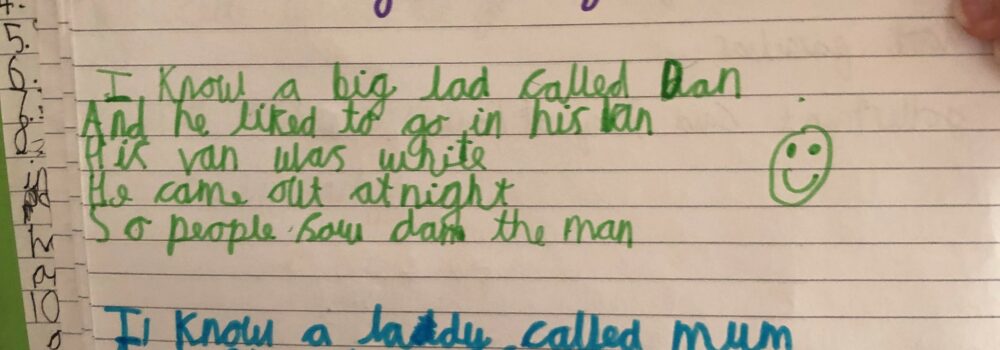 4.
5.
6.
7.
8.
I know a big lad called Dan
And he liked to go in his van
His van was white
He came out at night
So people saw dan the man
10
I know a laddy called mum